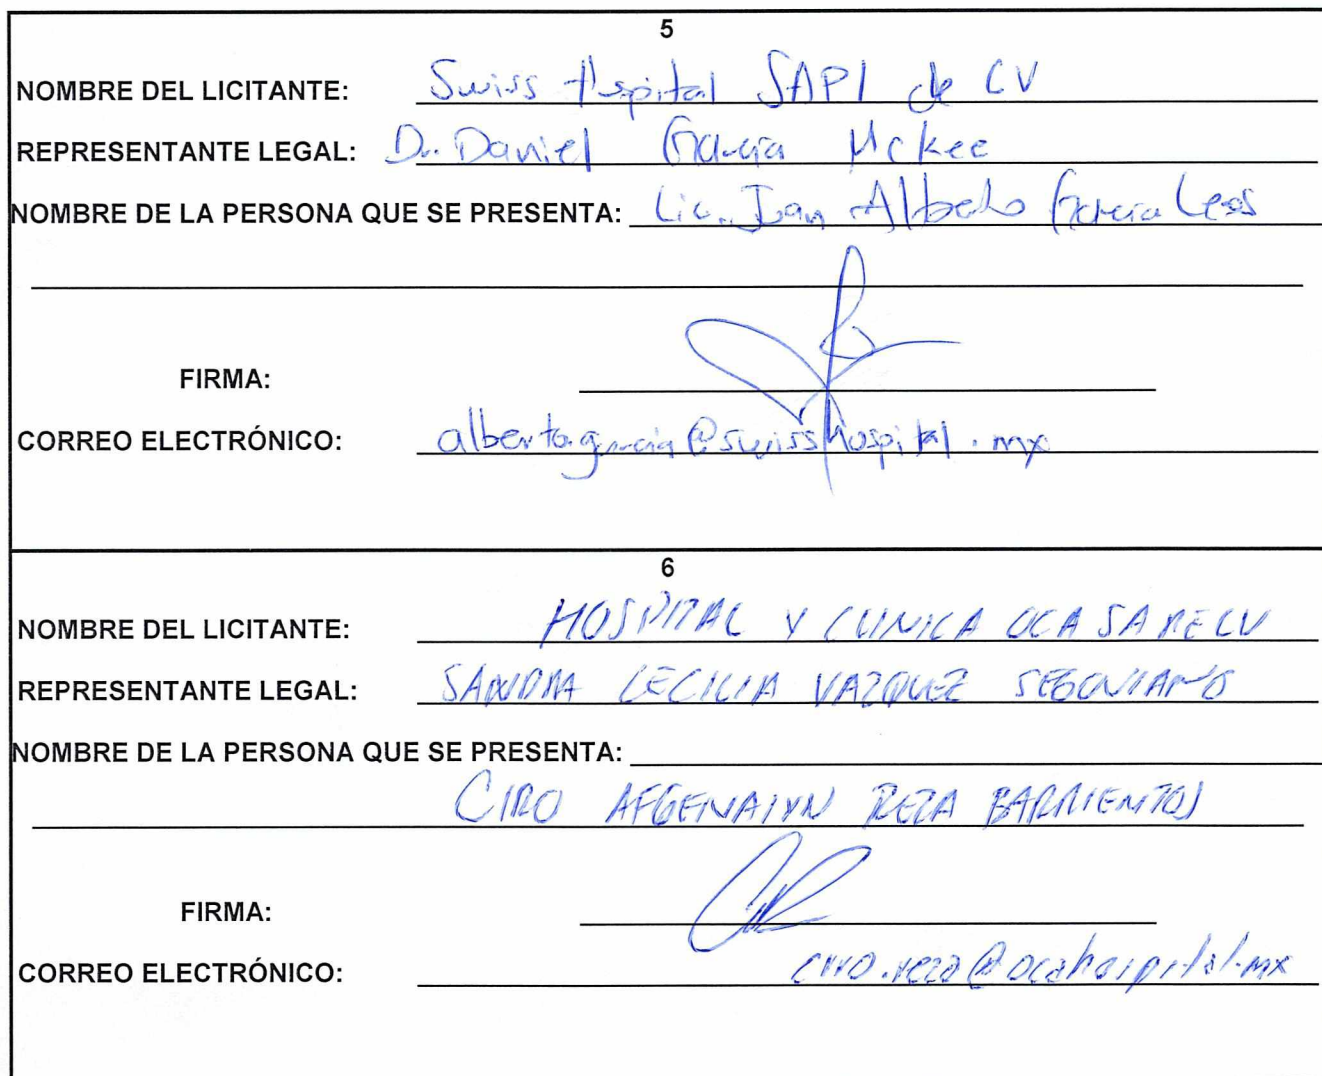 5
NOMBRE DEL LICITANTE: Swiss Hospital SAPI de CV
REPRESENTANTE LEGAL: Dr. Daniel García McKee
NOMBRE DE LA PERSONA QUE SE PRESENTA: Lic. Juan Alberto García Leos
FIRMA:
CORREO ELECTRÓNICO: alberto.garcia@swisshospital.mx
6
NOMBRE DEL LICITANTE: HOSPITAL Y CLINICA OCA SA DE CV
REPRESENTANTE LEGAL: SANDRA CECILIA VAZQUEZ SEGOVIANO
NOMBRE DE LA PERSONA QUE SE PRESENTA:
CIRO REZA BARRIENTOS
FIRMA:
CORREO ELECTRÓNICO: ciro.reza@ocahospital.mx